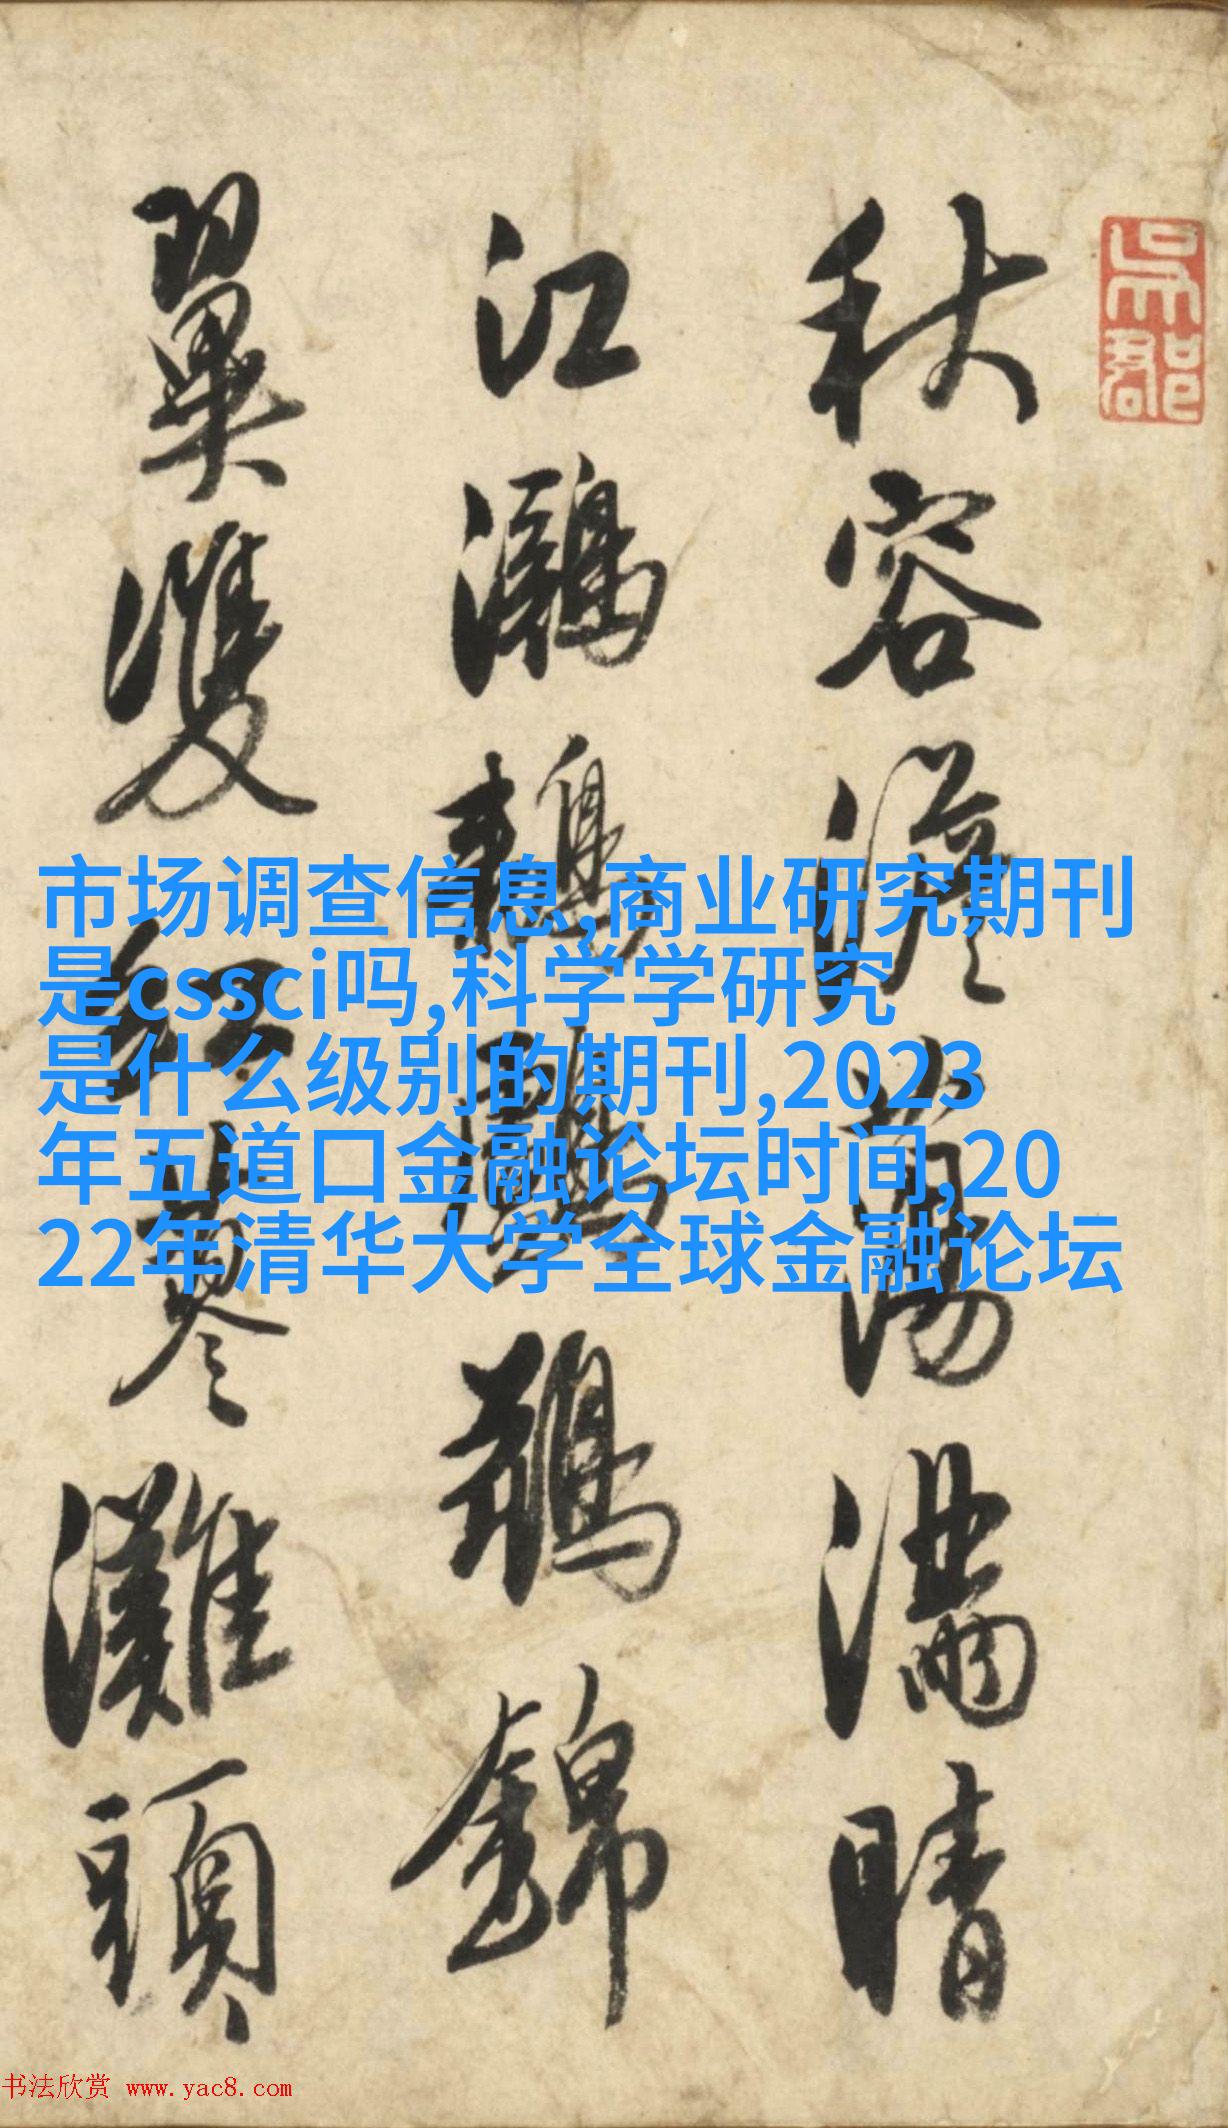 吳郡
秋容澹蕩滿晴
江鸂鶒
錦
翼雙紅蓼灘頭
市场调查信息,商业研究期刊
是cssci吗,科学学研究
是什么级别的期刊,2023
年五道口金融论坛时间,20
22年清华大学全球金融论坛
书法欣赏 www.yac8.com